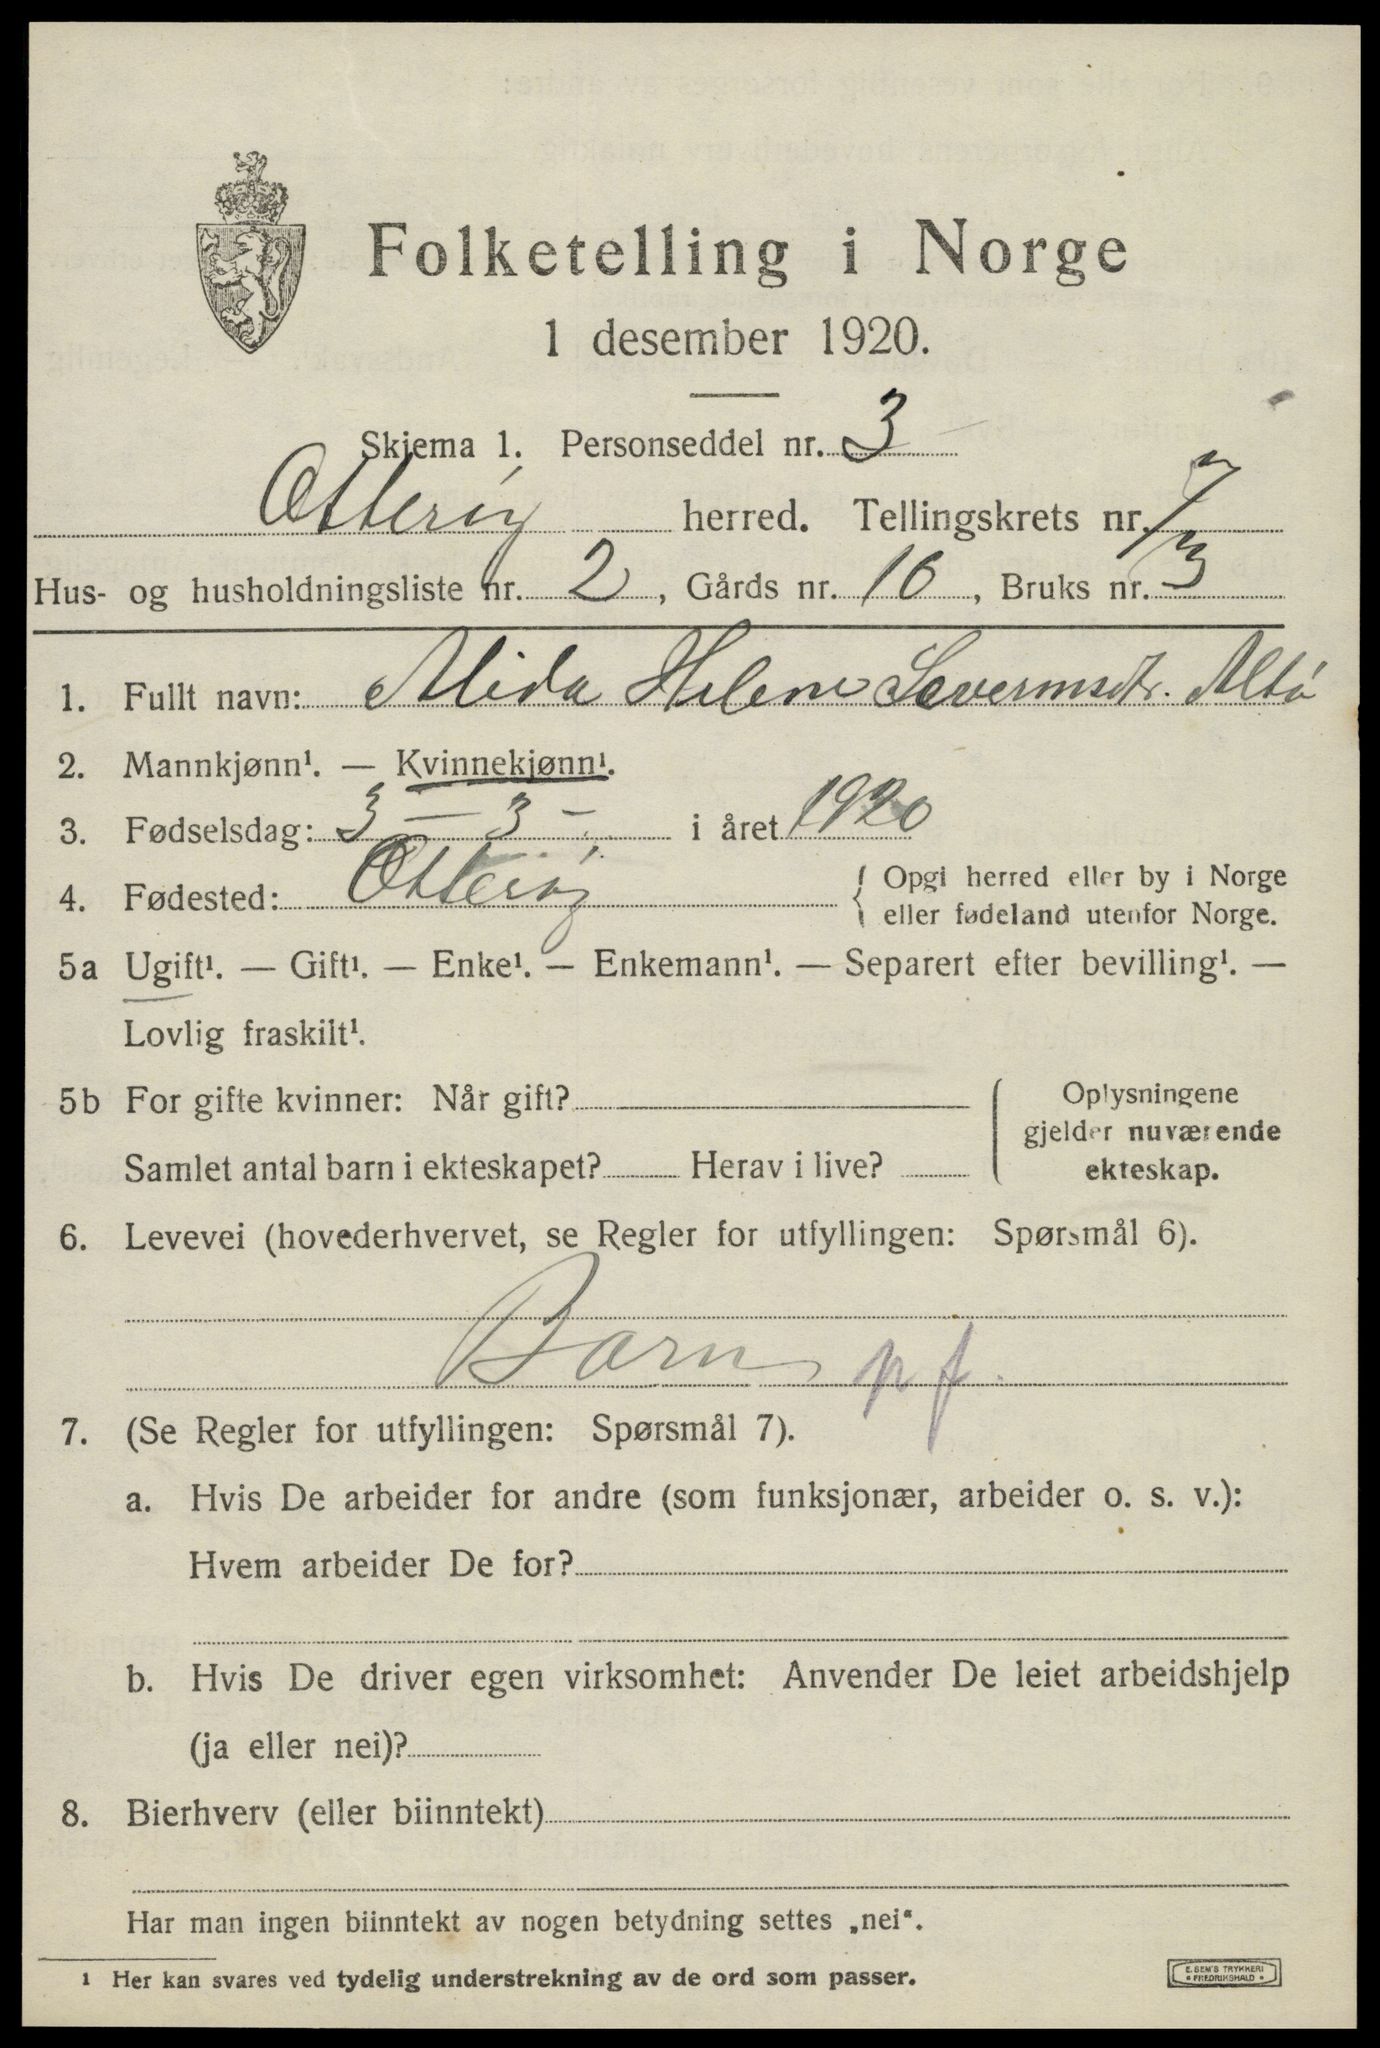 Folketelling i Norge
1 desember 1920.
Skjema 1. Personseddel nr. 3
Otterøy herred. Tellingskrets nr. 7
Hus- og husholdningsliste nr. 2, Gårds nr. 16, Bruks nr. 3
1. Fullt navn: Alida Helene Severinsdtr. Altø
2. Mannkjønn¹. — Kvinnekjønn¹.
3. Fødselsdag: 3 — 3 — i året 1920
4. Fødested: Otterøy { Opgi herred eller by i Norge
eller fødeland utenfor Norge.
5a Ugift¹. — Gift¹. — Enke¹. — Enkemann¹. — Separert efter bevilling¹. —
Lovlig fraskilt¹.
5b For gifte kvinner: Når gift?
Samlet antal barn i ekteskapet? Herav i live?
Oplysningene
gjelder nuværende
ekteskap.
6. Levevei (hovederhvervet, se Regler for utfyllingen: Spørsmål 6).
Barn pf.
7. (Se Regler for utfyllingen: Spørsmål 7).
a. Hvis De arbeider for andre (som funksjonær, arbeider o. s. v.):
Hvem arbeider De for?
b. Hvis De driver egen virksomhet: Anvender De leiet arbeidshjelp
(ja eller nei)?
8. Bierhverv (eller biinntekt)
Har man ingen biinntekt av nogen betydning settes „nei“.
¹ Her kan svares ved tydelig understrekning av de ord som passer.
E. SEM'S TRYKKERI
FREDRIKSHALD